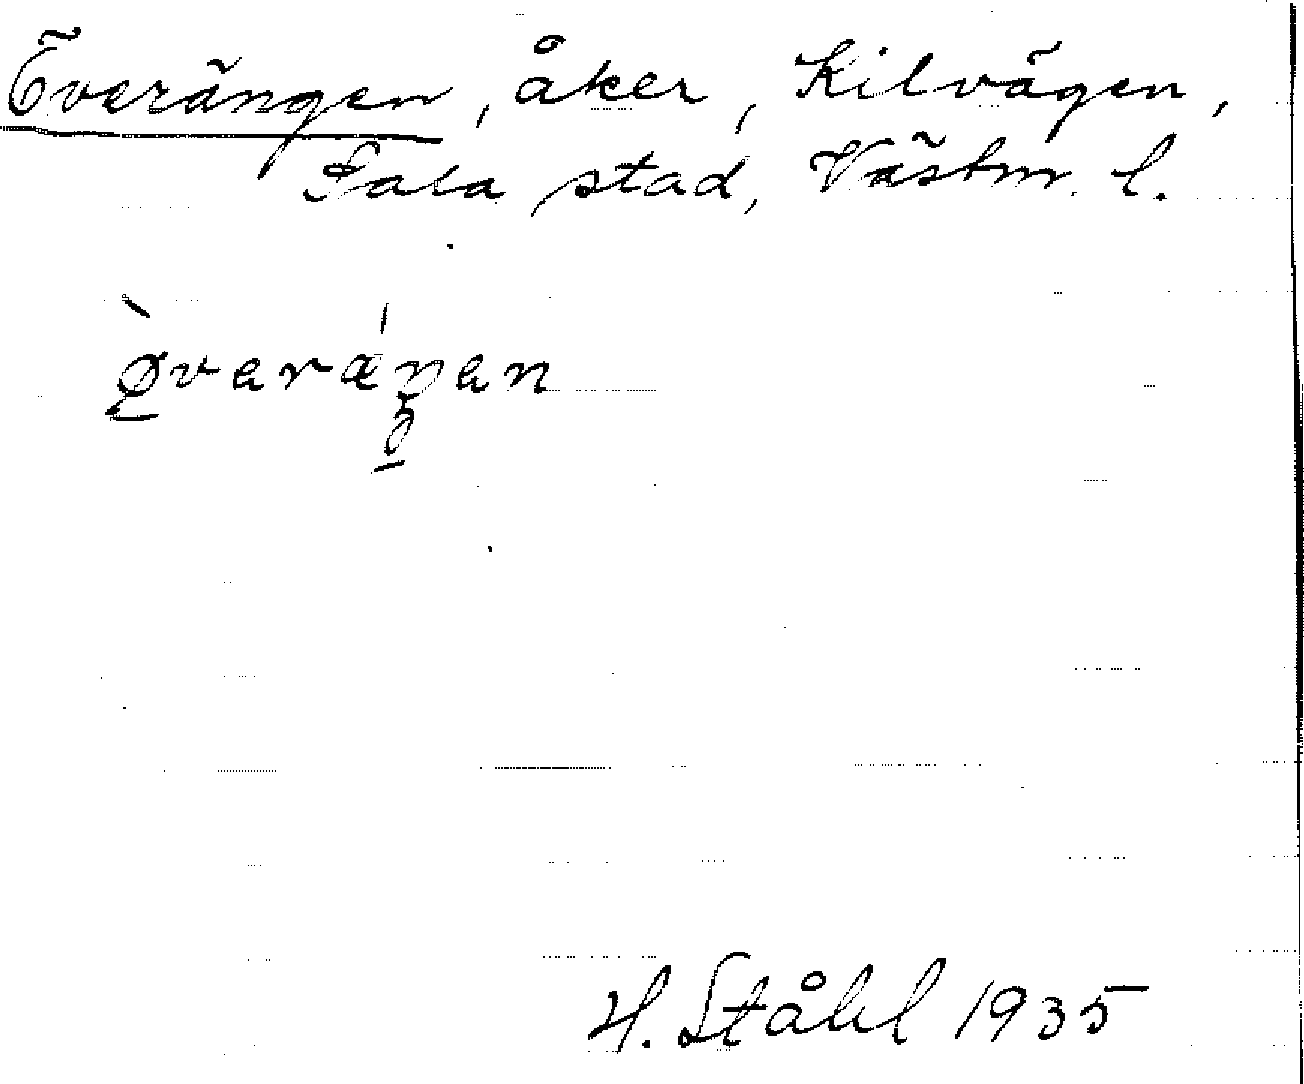 Överängen, åker, Kilvägen,
Sala stad, Västm. l.
øveräŋen
H. Ståhl 1935